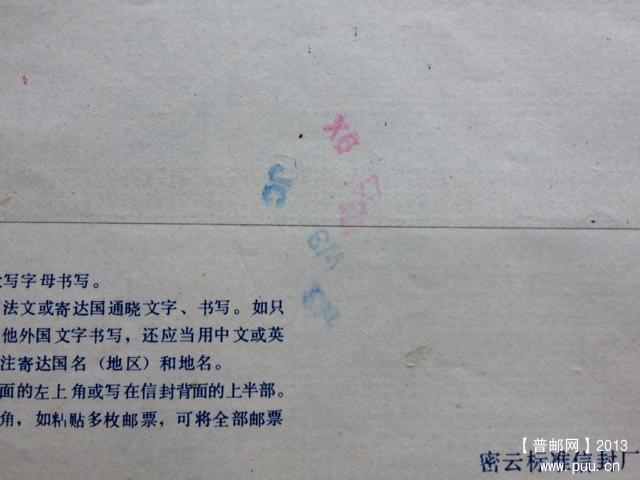 XB
JC
写字母书写。
法文或寄达国通晓文字、书写。如只
他外国文字书写，还应当用中文或英
注寄达国名（地区）和地名。
面的左上角或写在信封背面的上半部。
角，如粘贴多枚邮票，可将全部邮票
密云标准信封厂
【普邮网】2013
www.puu.cn